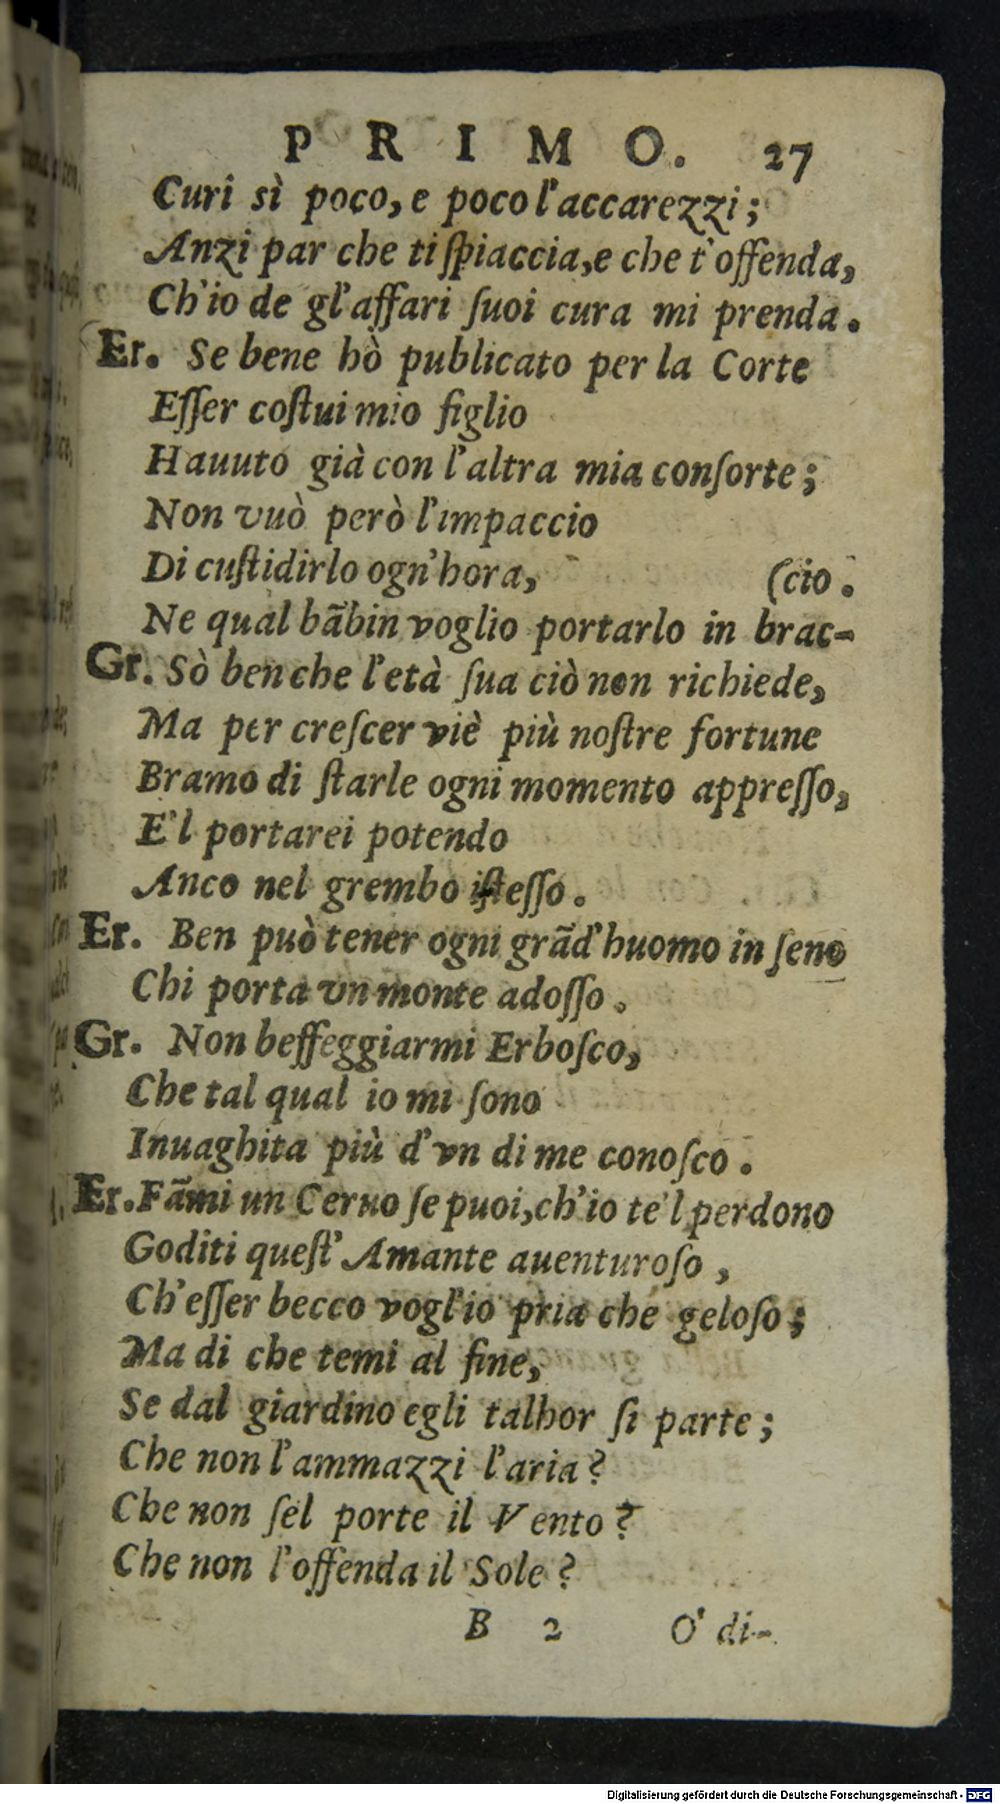 PRIMO. 27
Curi sì poco, e poco l'accarezzi;
Anzi par che ti ſpiaccia, e che t'offenda,
Ch'io de gl'affari ſuoi cura mi prenda.
Er. Se bene hò publicato per la Corte
Eſſer coſtui mio figlio
Hauuto già con l'altra mia conſorte;
Non vuò però l'impaccio
Di cuſtidirlo ogn'hora, (cio.
Ne qual bãbin voglio portarlo in brac-
Gr. Sò ben che l'età ſua ciò non richiede,
Ma per creſcer viè più noſtre fortune
Bramo di ſtarle ogni momento appreſſo,
E'l portarei potendo
Anco nel grembo iſteſſo.
Er. Ben può tener ogni grãd'huomo in ſeno
Chi porta vn monte adoſſo.
Gr. Non beffeggiarmi Erboſco,
Che tal qual io mi ſono
Inuaghita più d'vn di me conoſco.
Er. Fãmi un Ceruo ſe puoi, ch'io te'l perdono
Goditi queſt'Amante auenturoſo,
Ch'eſſer becco vogl'io pria che geloſo;
Ma di che temi al fine,
Se dal giardino egli talhor ſi parte;
Che non l'ammazzi l'aria?
Che non ſel porte il Vento?
Che non l'offenda il Sole?
B 2 O' di-
Digitalisierung gefördert durch die Deutsche Forschungsgemeinschaft - DFG